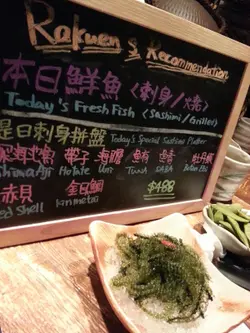 Rakuen's Recommendation
本日鮮魚〈刺身/燒〉
Today's Fresh Fish 〈Sashimi/Grilled〉
是日刺身拼盤 Today's Special Sashimi Platter
帶子 海膽 鮪 鯖 牡丹蝦
Shima Aji Hotate Uni Tuna SABA Botan Ebi
赤貝 金目鯛 $488
Red Shell kinmetai